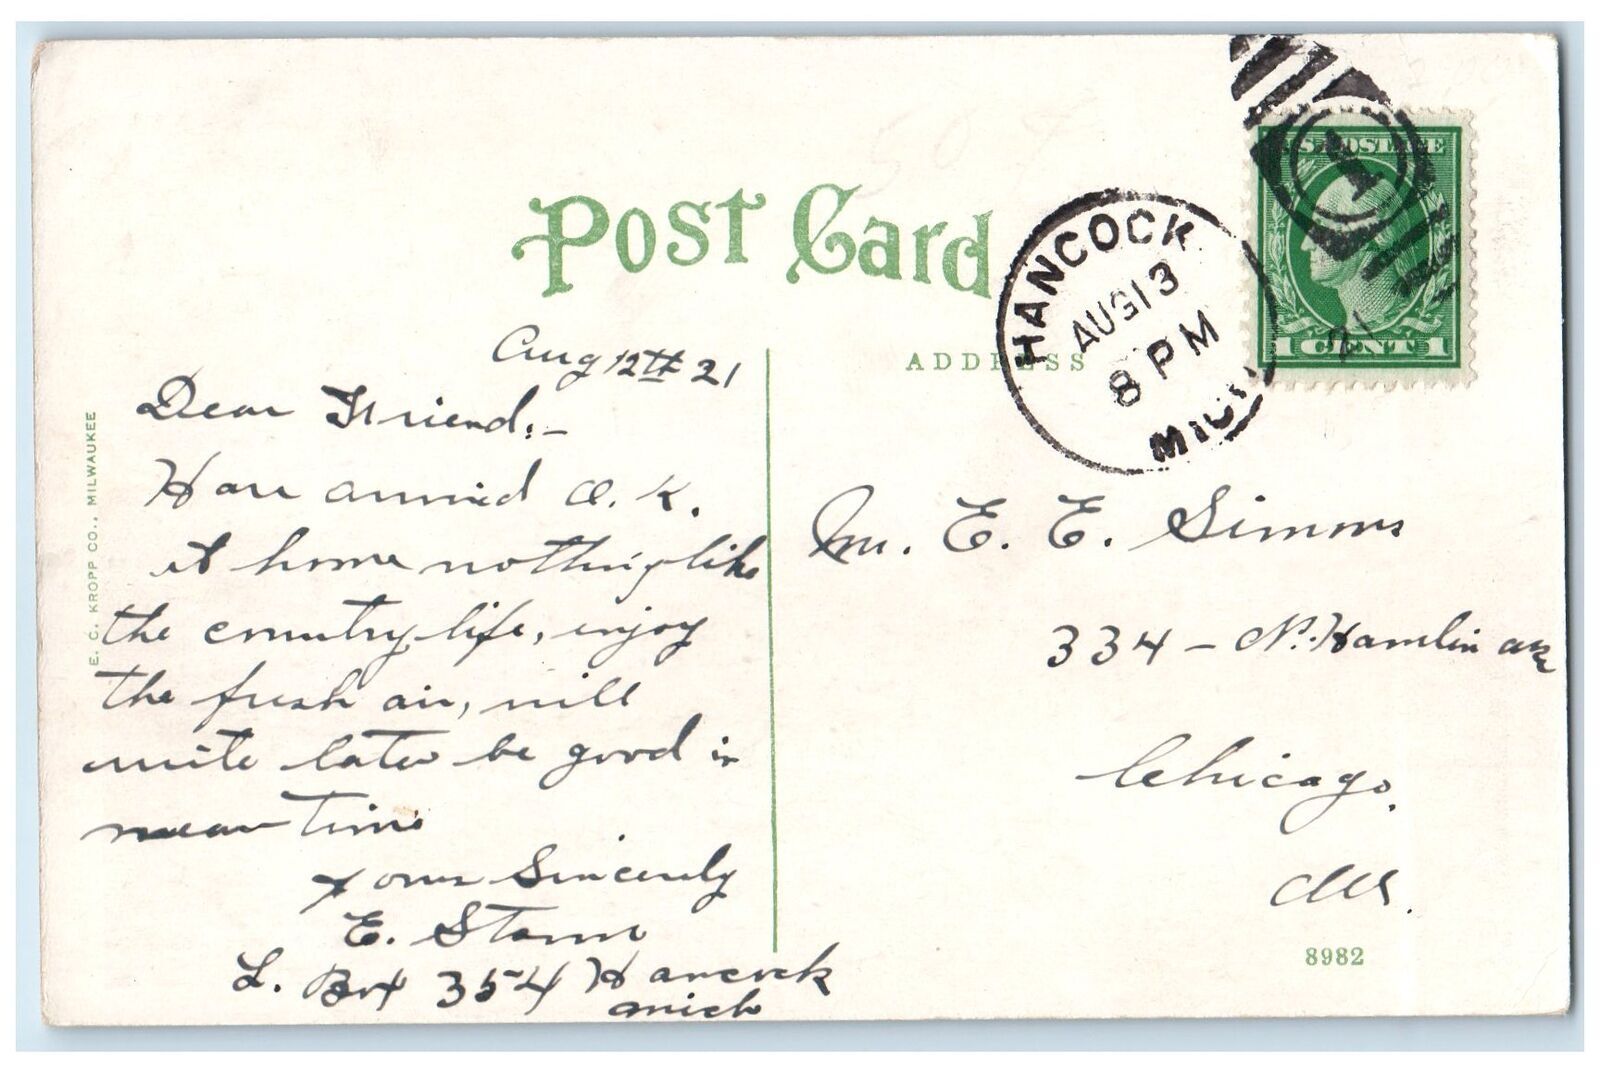 POST CARD
U.S. POSTAGE
1
1 CENT 1
HANCOCK
AUG 13
8 PM
MICH.
21
ADDRESS
Aug 12th 21
Dear Friend:-
Have arrived O. K.
at home nothing like
the country life, enjoy
the fresh air, will
write later be good in
mean time
yours Sincerely
E.
L. Box 354 Hancock
Mich
Mr. E. E. Simms
334 - N. Hamlin ave
Chicago.
Ills.
8982
E. C. KROPP CO., MILWAUKEE